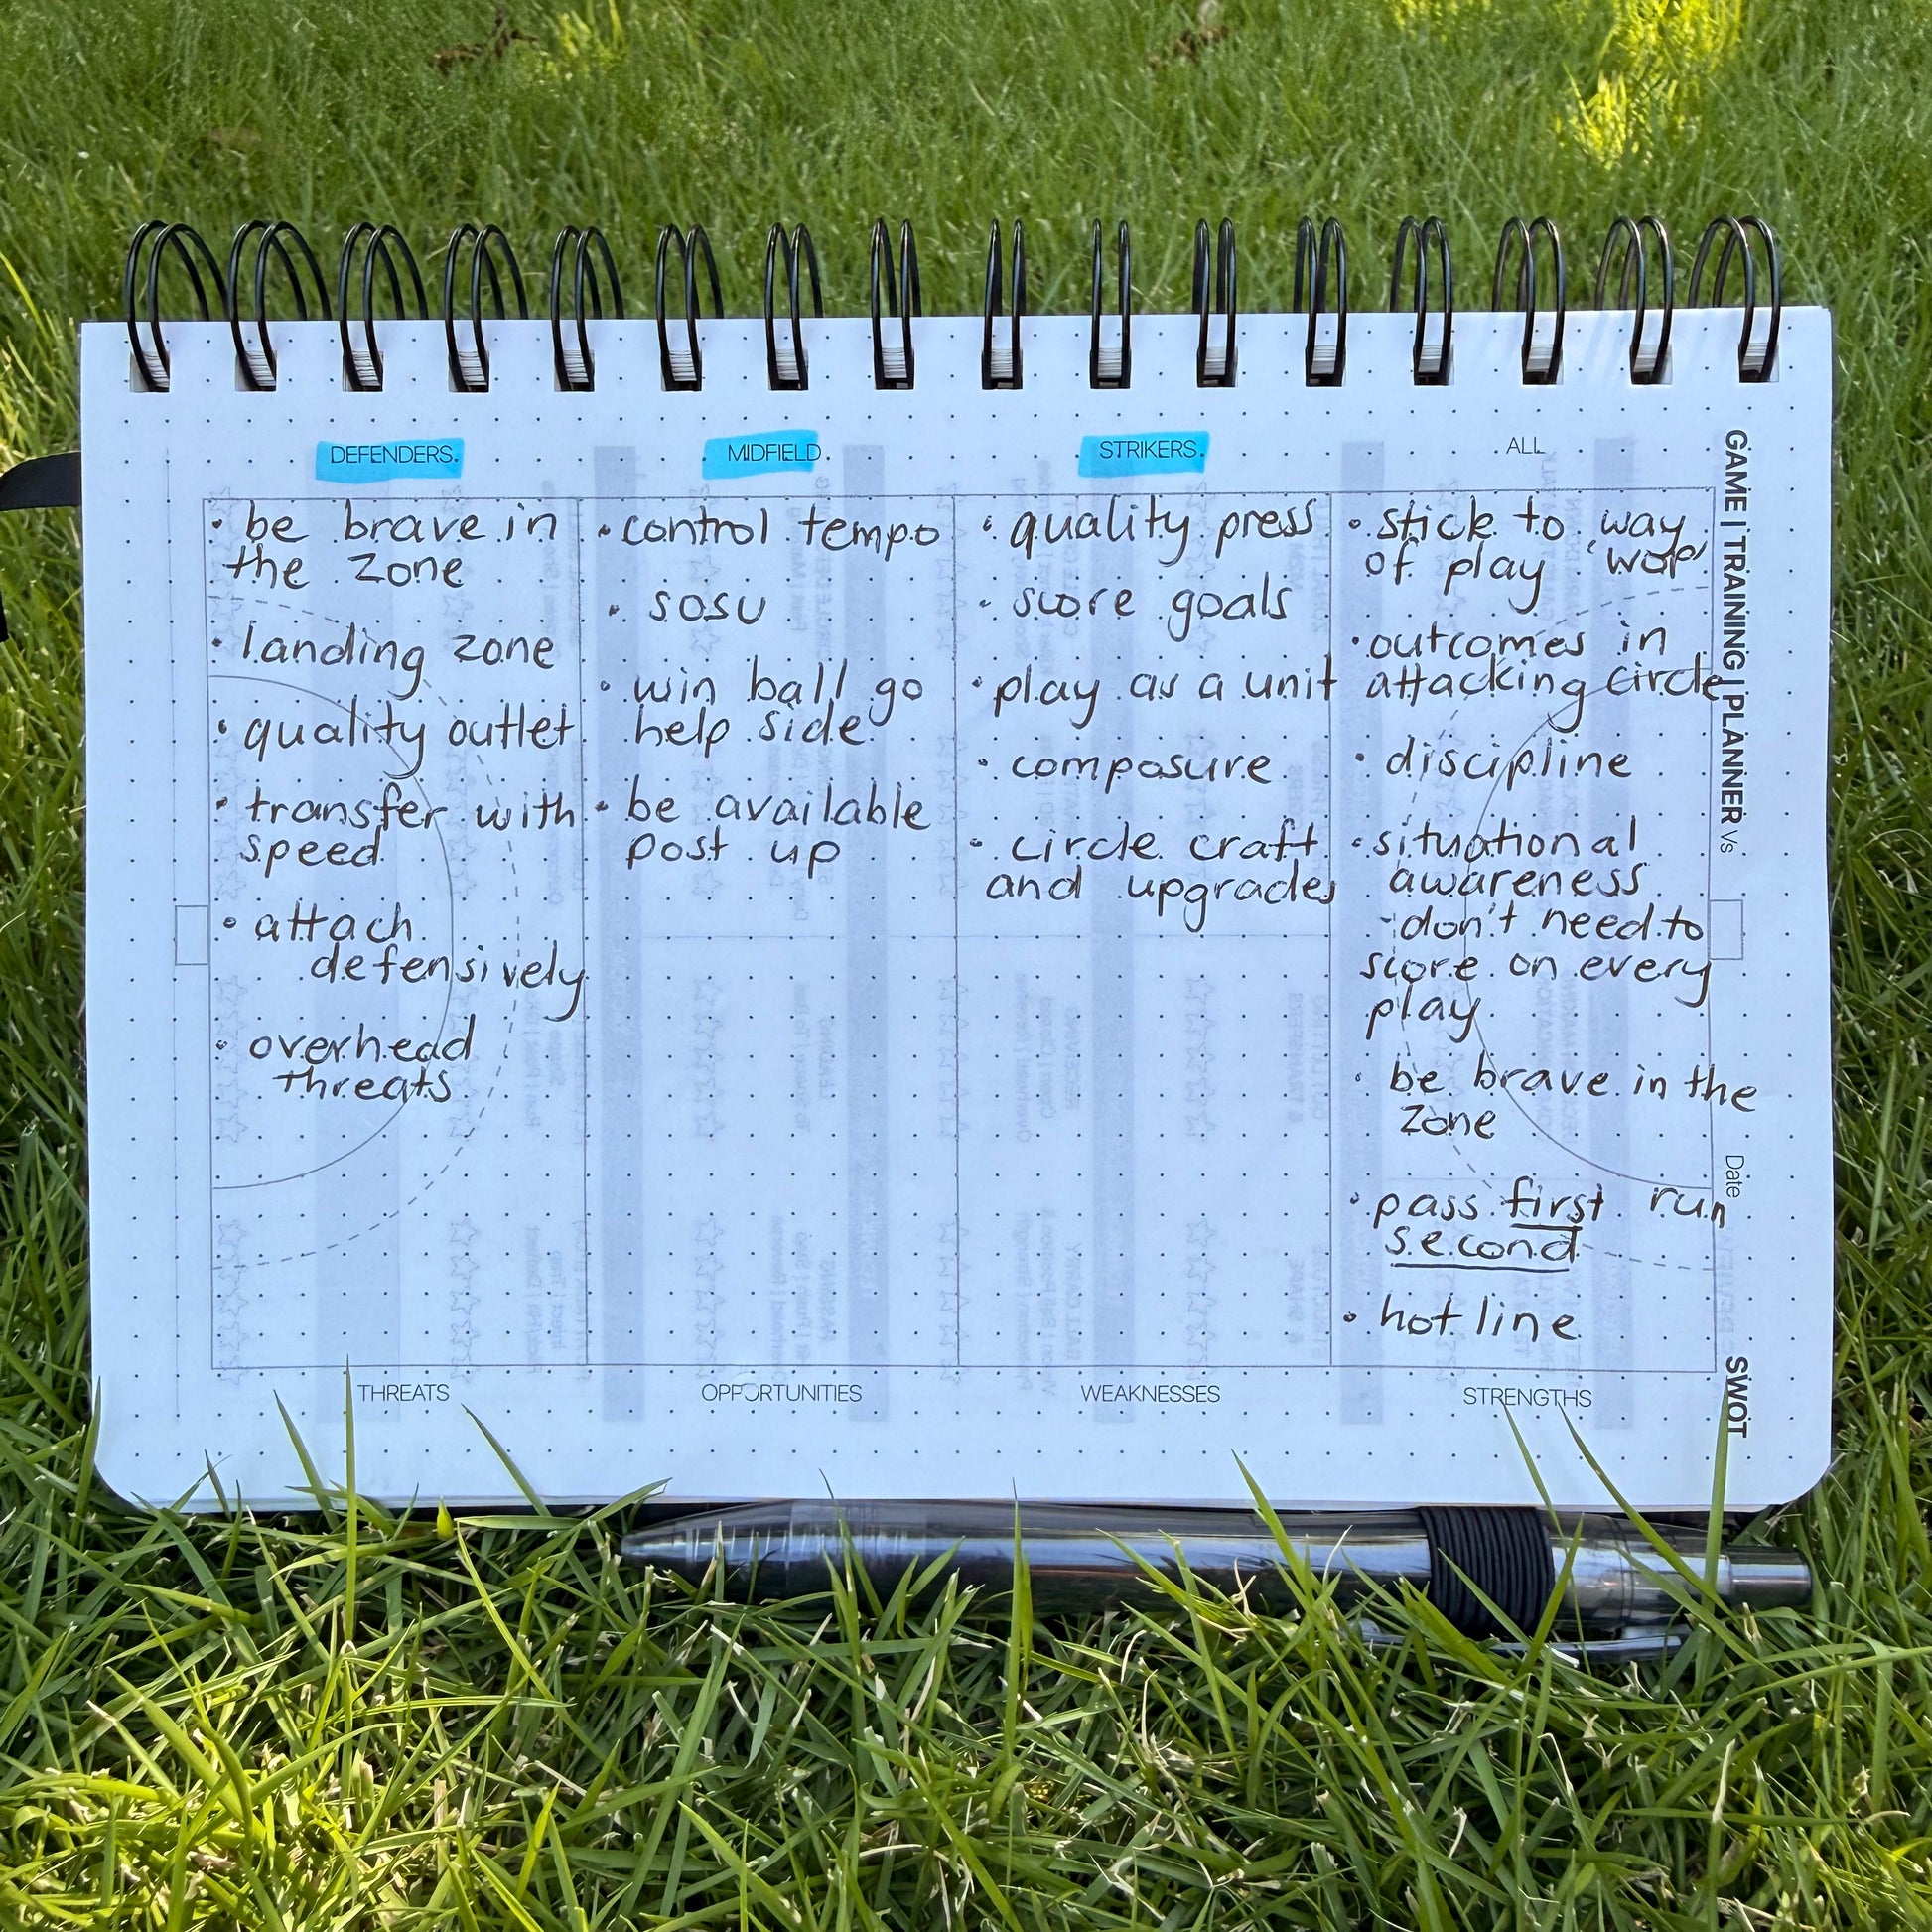 DEFENDERS
be brave in
the zone
landing zone
quality outlet
transfer with
speed
attach
defensively
overhead
threats
THREATS
MIDFIELD
control tempo
SOSU
win ball go
help side
be available
post up
OPPORTUNITIES
STRIKERS
quality press
score goals
play as a unit
composure
circle craft
and upgrades
WEAKNESSES
ALL
stick to way
of play 'wop'
outcomes in
attacking circle
discipline
situational
awareness
-don't need to
score on every
play
be brave in the
zone
pass first run
second
hot line
STRENGTHS
GAME | TRAINING | PLANNER Vs
Date
SWOT